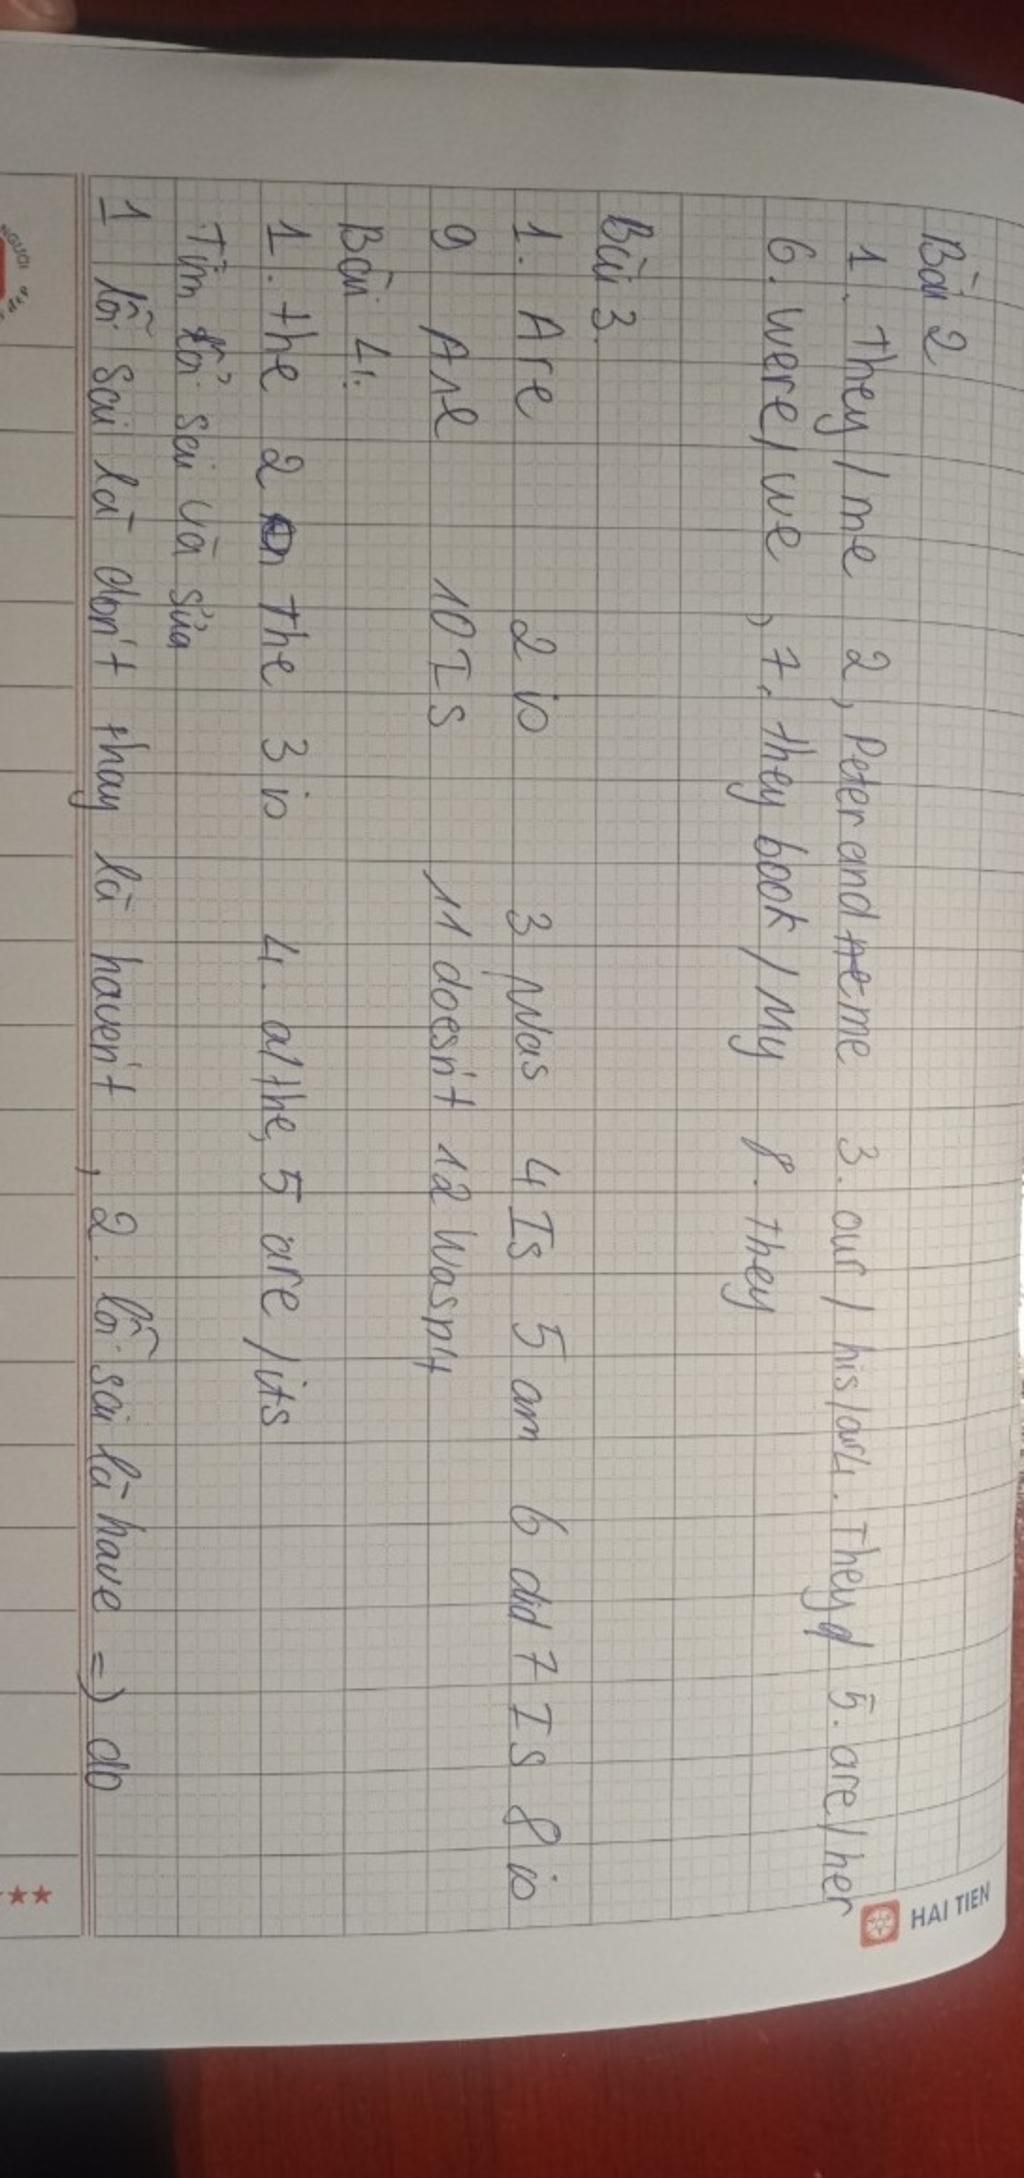 HAI TIEN
Bài 2
1. They / me 2, Peter and me 3. our / his / 4. They 5. are / her
6. were / we , 7. they book / My 8. they
Bài 3.
1. Are 2 is 3 Was 4 Is 5 am 6 did 7 Is 8 is
9 Are 10 Is 11 doesn't 12
Bài 4:
1. the 2 the 3 is 4. a / the, 5 are / its
Tìm lỗi sai và sửa
1 lỗi sai là don't thay là haven't , 2. lỗi sai là have => do